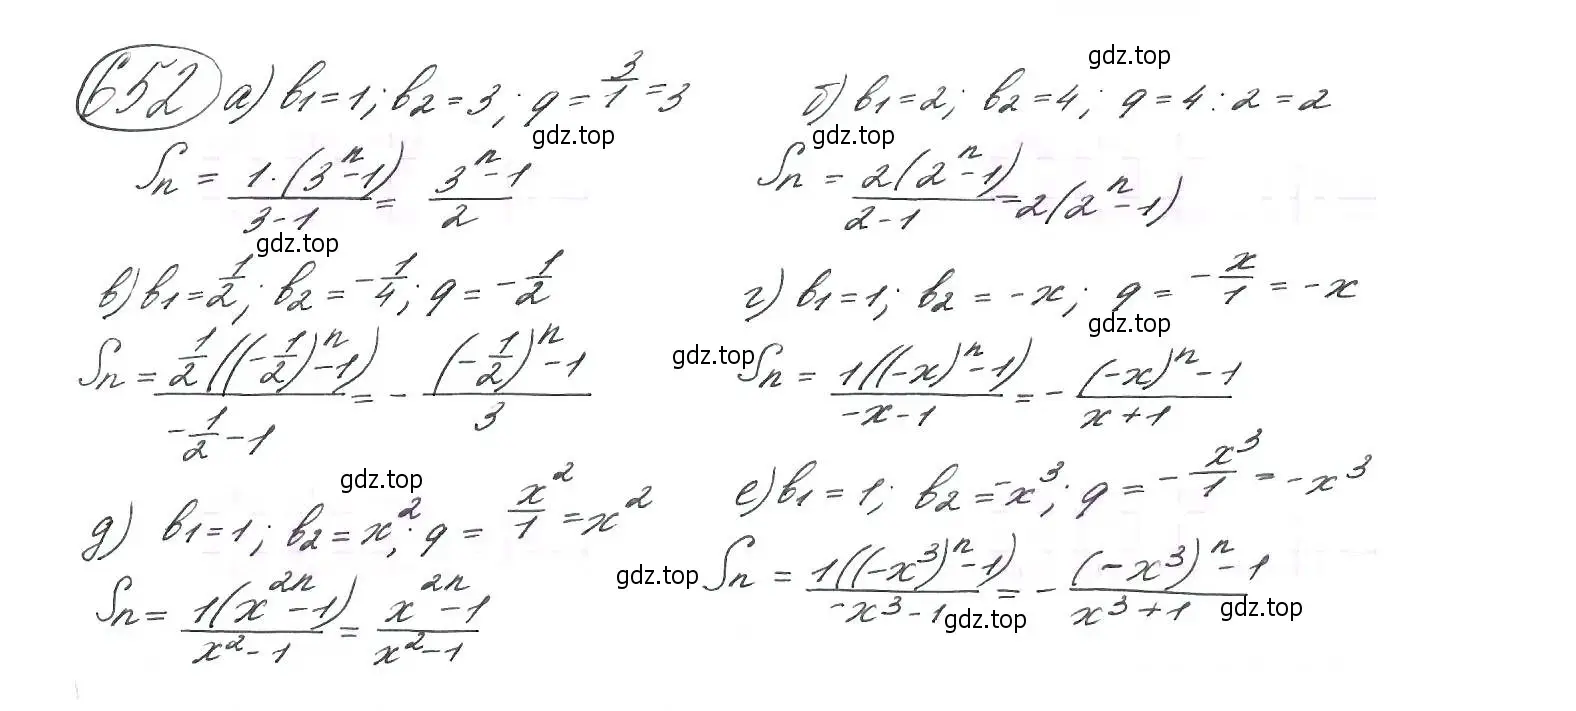 652 а) b₁=1; b₂=3; q = 3/1 = 3
gdz.top
Sₙ = 1·(3ⁿ-1)/(3-1) = (3ⁿ-1)/2
gdz.top
б) b₁=2; b₂=4; q=4:2=2
gdz.top
gdz.top
Sₙ = 2(2ⁿ-1)/(2-1) = 2(2ⁿ-1)
в) b₁=1/2; b₂=-1/4; q=-1/2
Sₙ = 1/2((-1/2)ⁿ-1)/(-1/2-1) = - ((-1/2)ⁿ-1)/3
г) b₁=1; b₂=-x; q = -x/1 = -x
gdz.top
gdz.top
Sₙ = 1((-x)ⁿ-1)/(-x-1) = - ((-x)ⁿ-1)/(x+1)
gdz.top
д) b₁=1; b₂=x²; q = x²/1 = x²
Sₙ = 1(x²ⁿ-1)/(x²-1) = (x²ⁿ-1)/(x²-1)
е) b₁=1; b₂=-x³; q = -x³/1 = -x³
gdz.top
Sₙ = 1((-x³)ⁿ-1)/(-x³-1) = - ((-x³)ⁿ-1)/(x³+1)
gdz.top
gdz.top